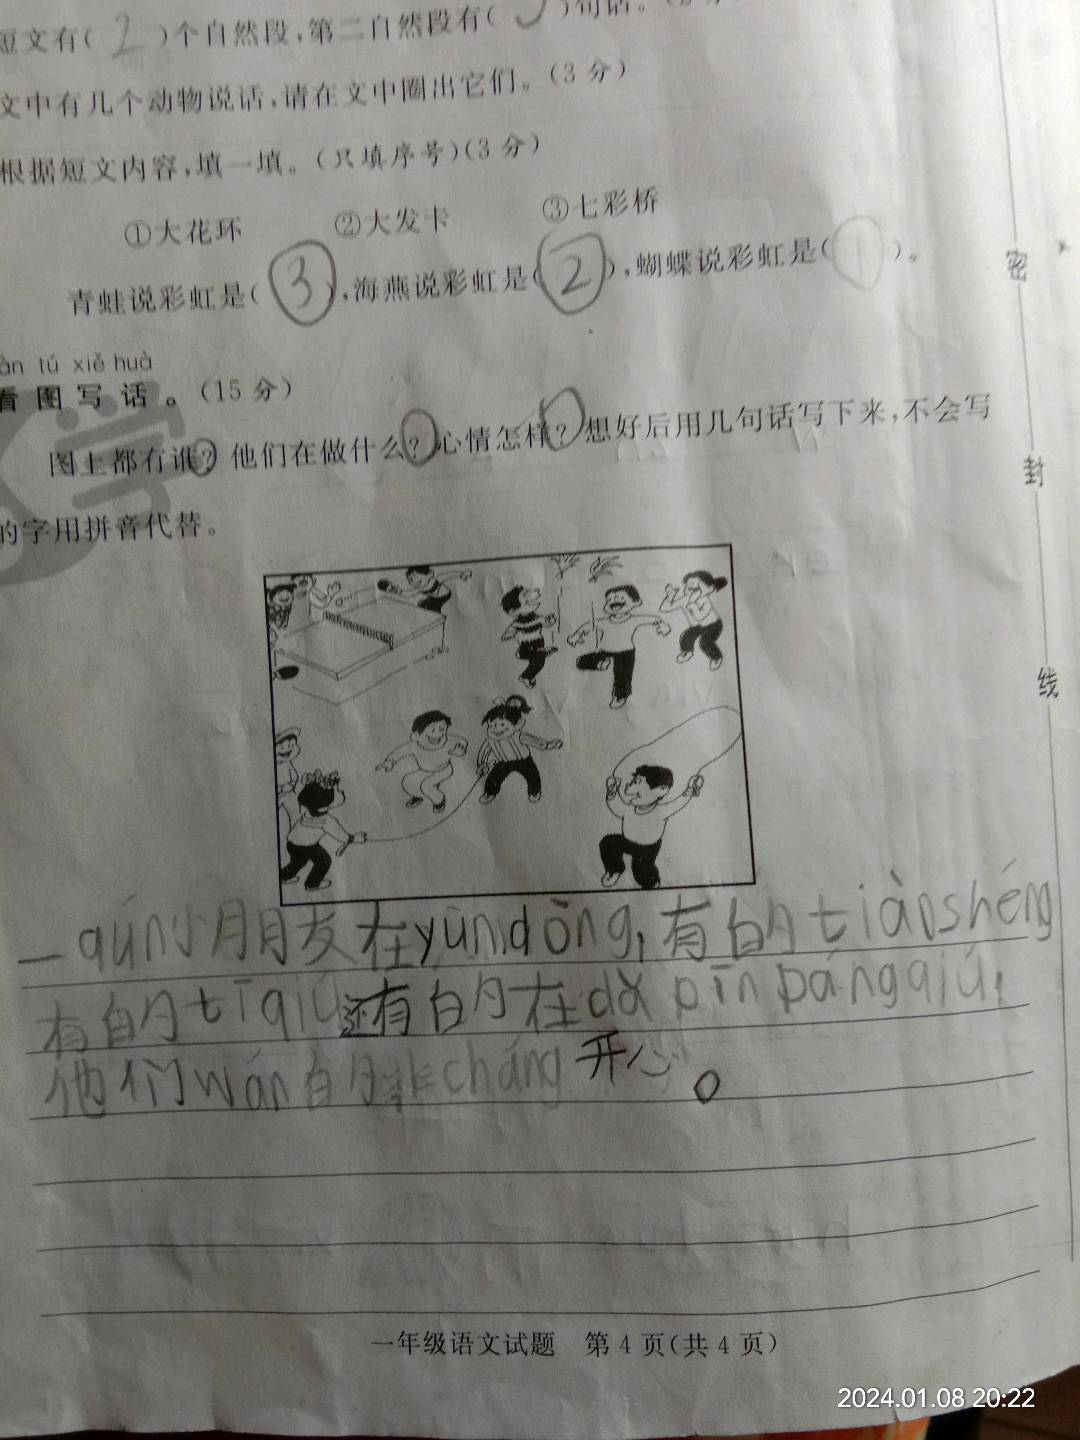 短文有( 2 )个自然段,第二自然段有( )句话。
文中有几个动物说话,请在文中圈出它们。(3分)
根据短文内容,填一填。(只填序号)(3分)
①大花环 ②大发卡 ③七彩桥
青蛙说彩虹是( 3 ),海燕说彩虹是( 2 ),蝴蝶说彩虹是( 1 )。
àn tú xiě huà
看图写话。(15分)
图上都有谁?他们在做什么?心情怎样?想好后用几句话写下来,不会写
的字用拼音代替。
一qún小朋友在yùndòng,有的tiàoshéng
有的tīqiú还有的在dǎ pīn pángqiú,
他们wán的非cháng开心。
密
封
线
学
一年级语文试题 第4页(共4页)
2024.01.08 20:22